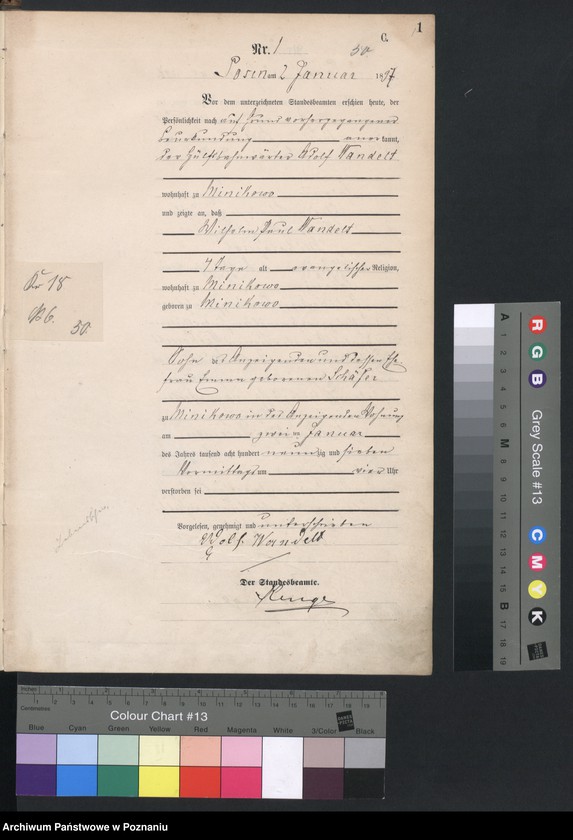 1
C.
Nr. 1
30
Posen am 2 Januar 1897
Vor dem unterzeichneten Standesbeamten erschien heute, der
Persönlichkeit nach auf Grund vorhergegangener
Beurkundung anerkannt,
der Hülfsbahnwärter Adolf Wandelt
wohnhaft zu Minikowo
und zeigte an, daß
Wilhelm Paul Wandelt
4 Tage alt evangelischer Religion,
wohnhaft zu Minikowo
geboren zu Minikowo
Sohn des Anzeigenden und dessen Ehe
frau Emma geborenen Schäfer
zu Minikowo in des Anzeigenden Wohnung
am zwei ten Januar
des Jahres tausend acht hundert neunzig und sieben
Vormittags um vier Uhr
verstorben sei
Vorgelesen, genehmigt und unterschrieben
Adolf Wandelt
Der Standesbeamte.
18
6.
30.
Grey Scale #13
R
G
B
C
M
Y
K
A
1
2
3
4
5
6
M
8
9
10
11
12
13
14
15
B
17
18
19
Inches
Centimetres
Colour Chart #13
Blue
Cyan
Green
Yellow
Red
Magenta
White
3/Color
Black
Archiwum Państwowe w Poznaniu